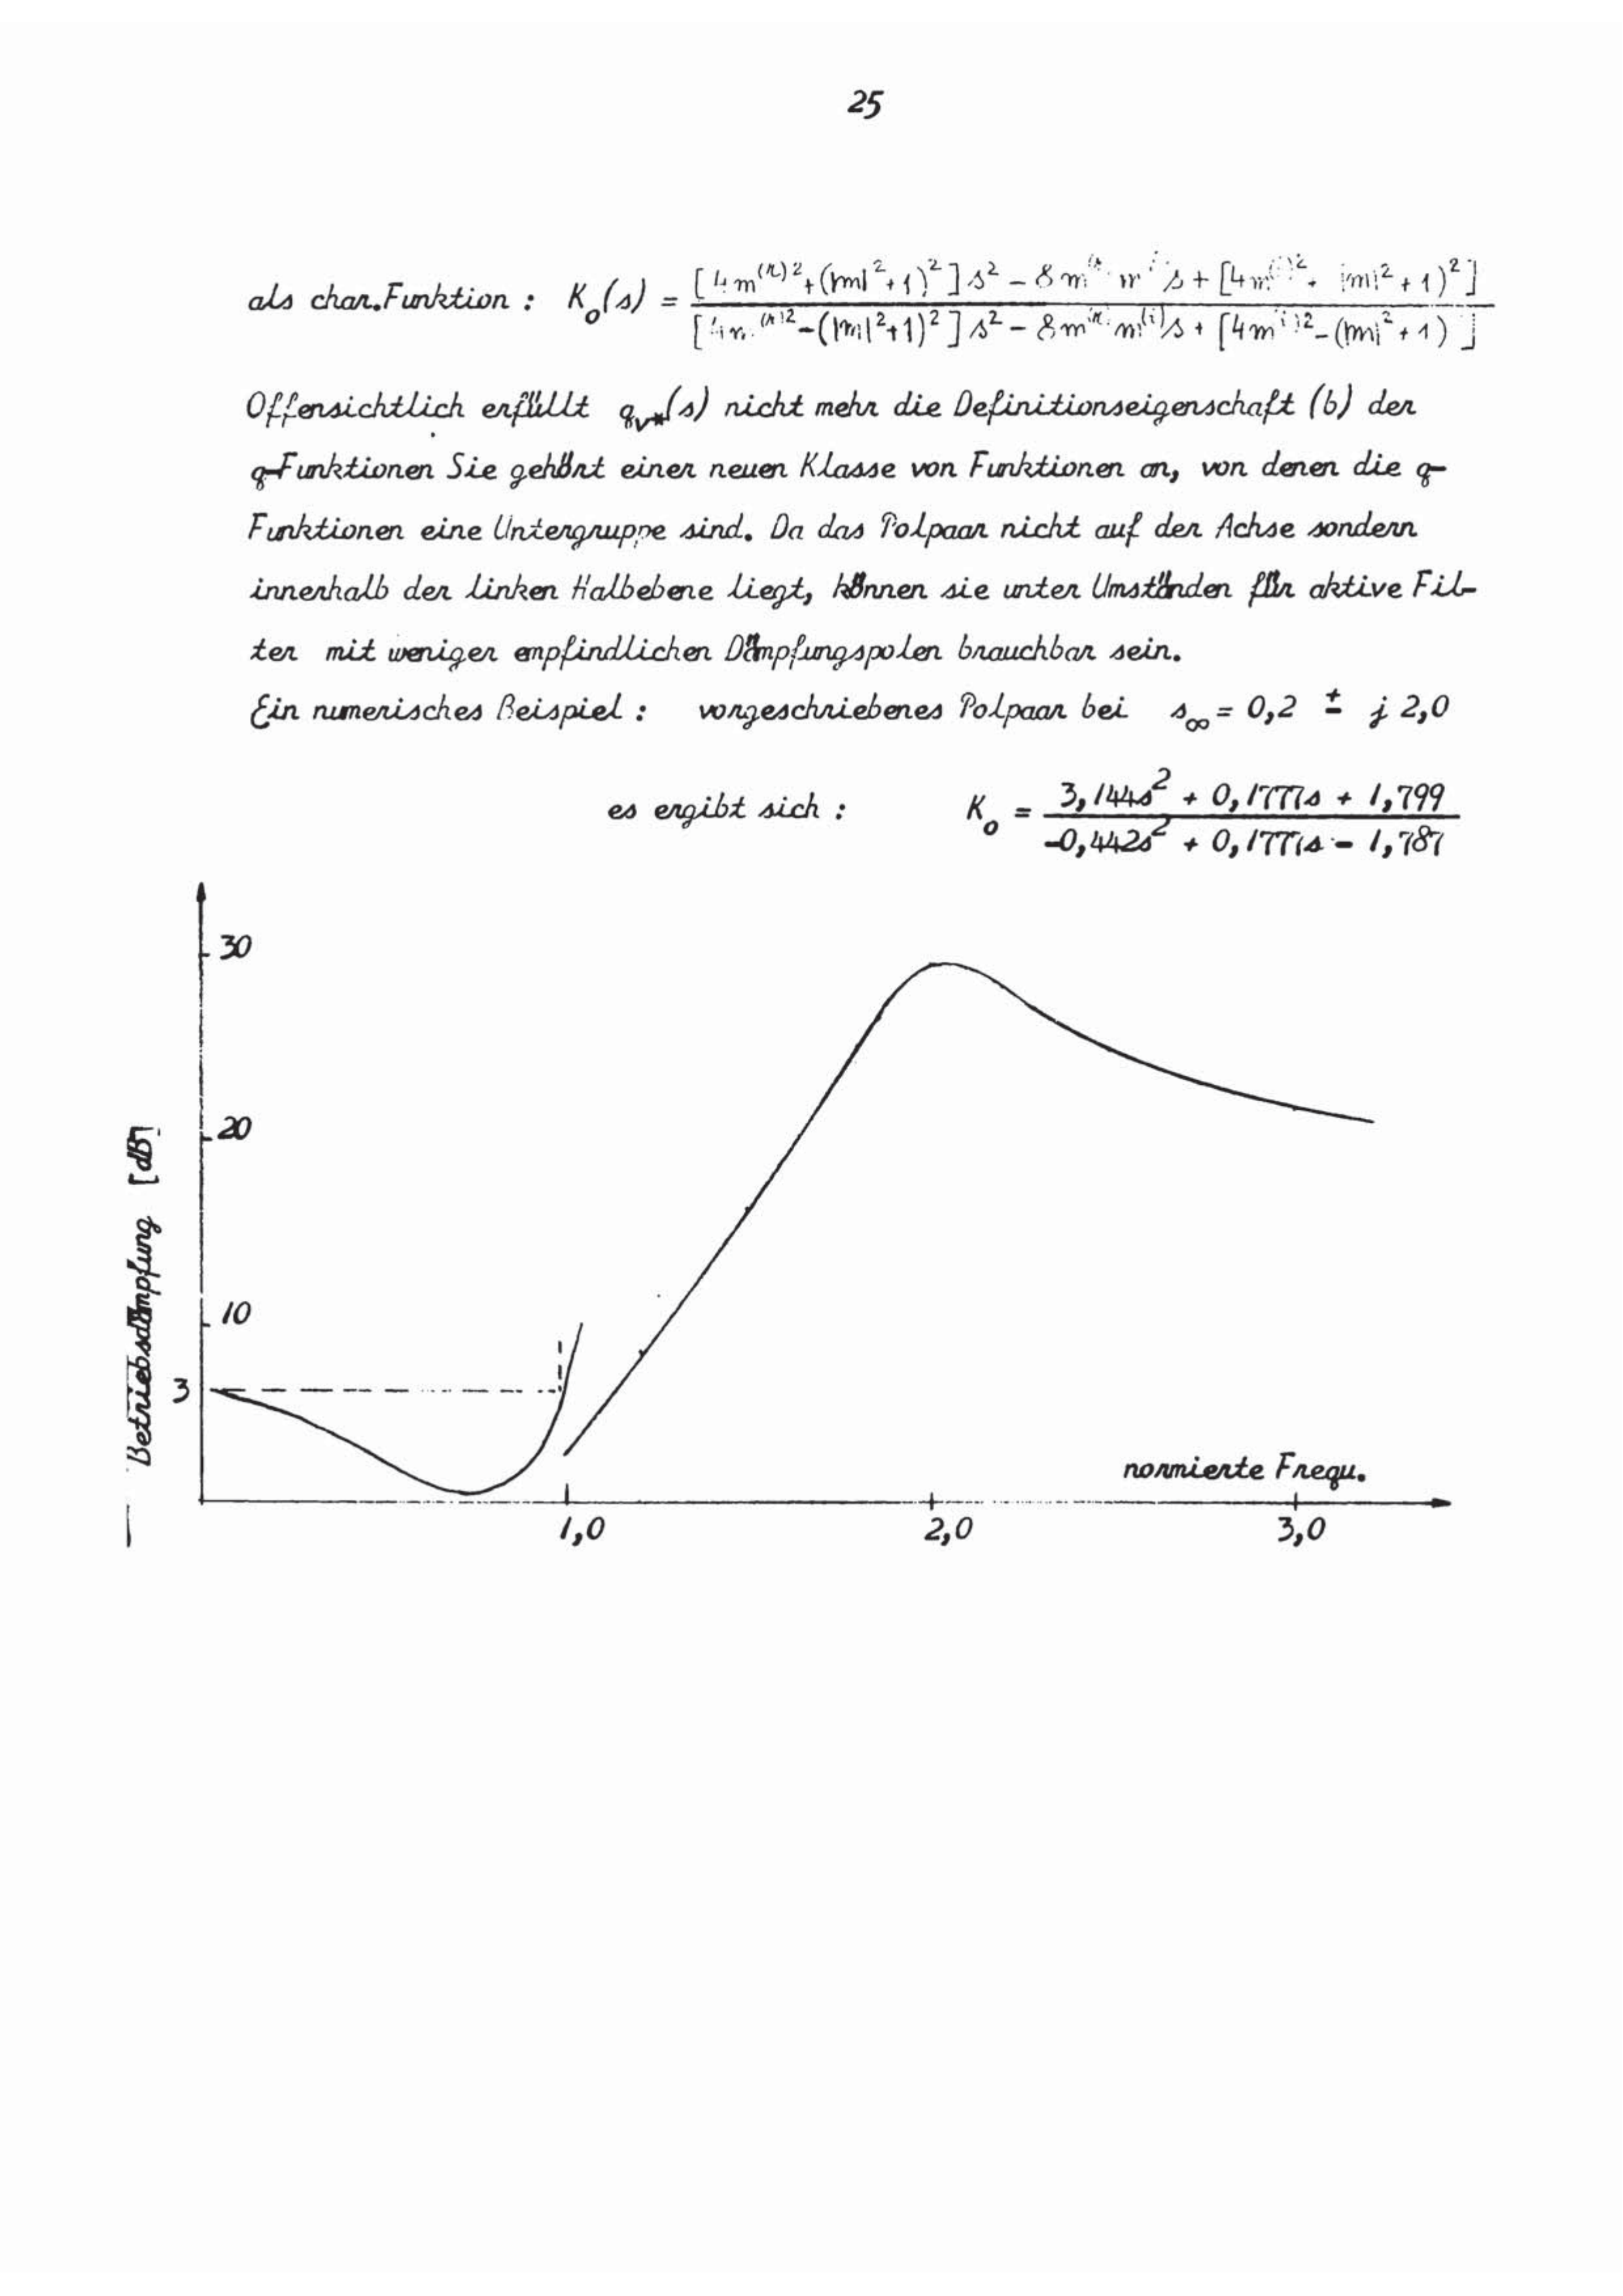 25
als char.Funktion : K₀(s) = [4m⁽ʳ⁾²+(|m|²+1)²]s² - 8m⁽ʳ⁾m⁽ⁱ⁾s + [4m⁽ⁱ⁾²+(|m|²+1)²]
[4m⁽ʳ⁾²-(|m|²+1)²]s² - 8m⁽ʳ⁾m⁽ⁱ⁾s + [4m⁽ⁱ⁾²-(|m|²+1)]
Offensichtlich erfüllt qᵥ*(s) nicht mehr die Definitionseigenschaft (b) der
q-Funktionen Sie gehört einer neuen Klasse von Funktionen an, von denen die q-
Funktionen eine Untergruppe sind. Da das Polpaar nicht auf der Achse sondern
innerhalb der linken Halbebene liegt, können sie unter Umständen für aktive Fil-
ter mit weniger empfindlichen Dämpfungspolen brauchbar sein.
Ein numerisches Beispiel : vorgeschriebenes Polpaar bei s∞ = 0,2 ± j 2,0
es ergibt sich : K₀ = 3,144s² + 0,1777s + 1,799
-0,442s² + 0,1777s - 1,787
30
20
10
3
Betriebsdämpfung [dB]
normierte Frequ.
1,0 2,0 3,0